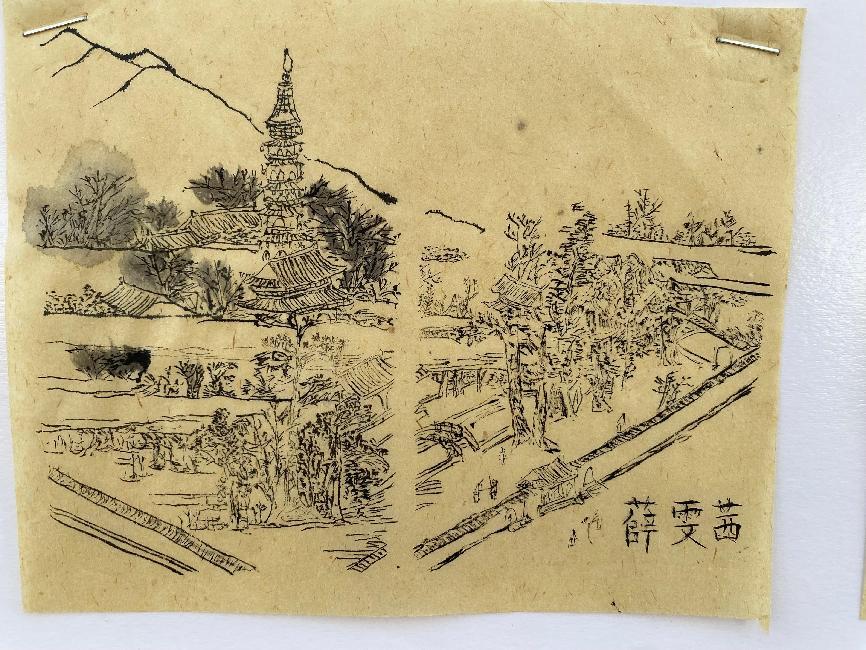 薛雯茜